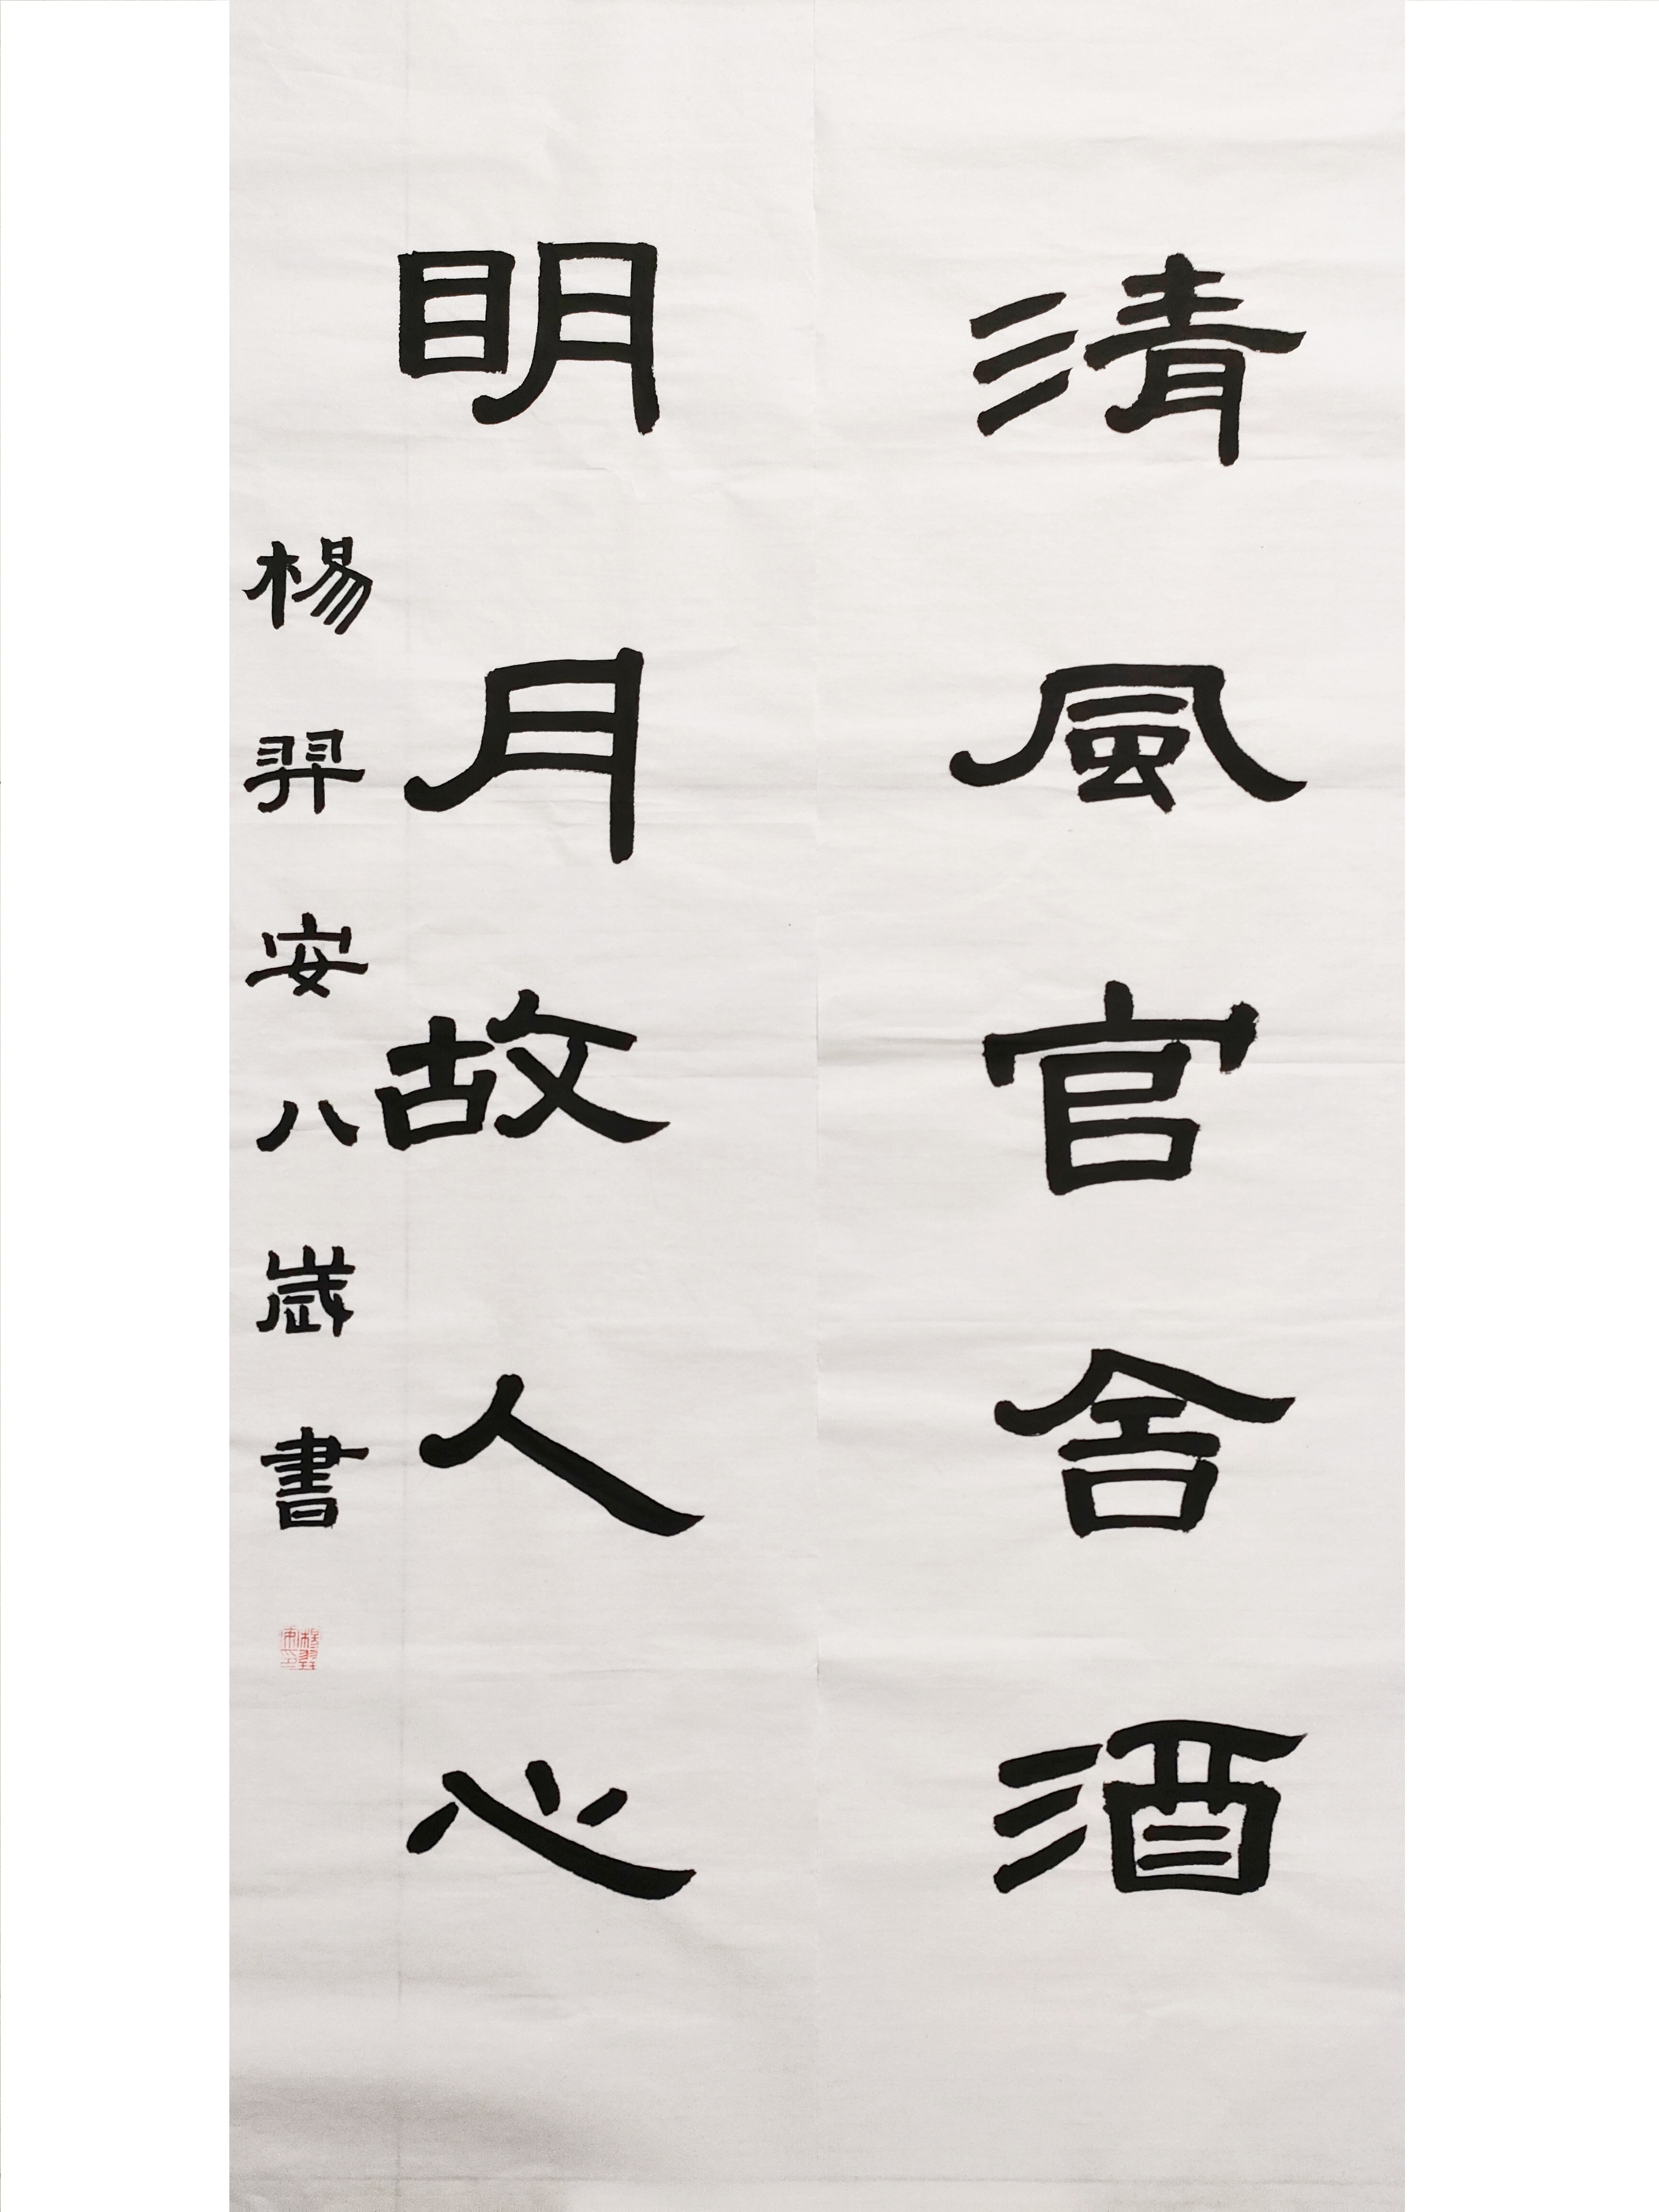 清風官舍酒
明月故人心
楊羿安八歲書